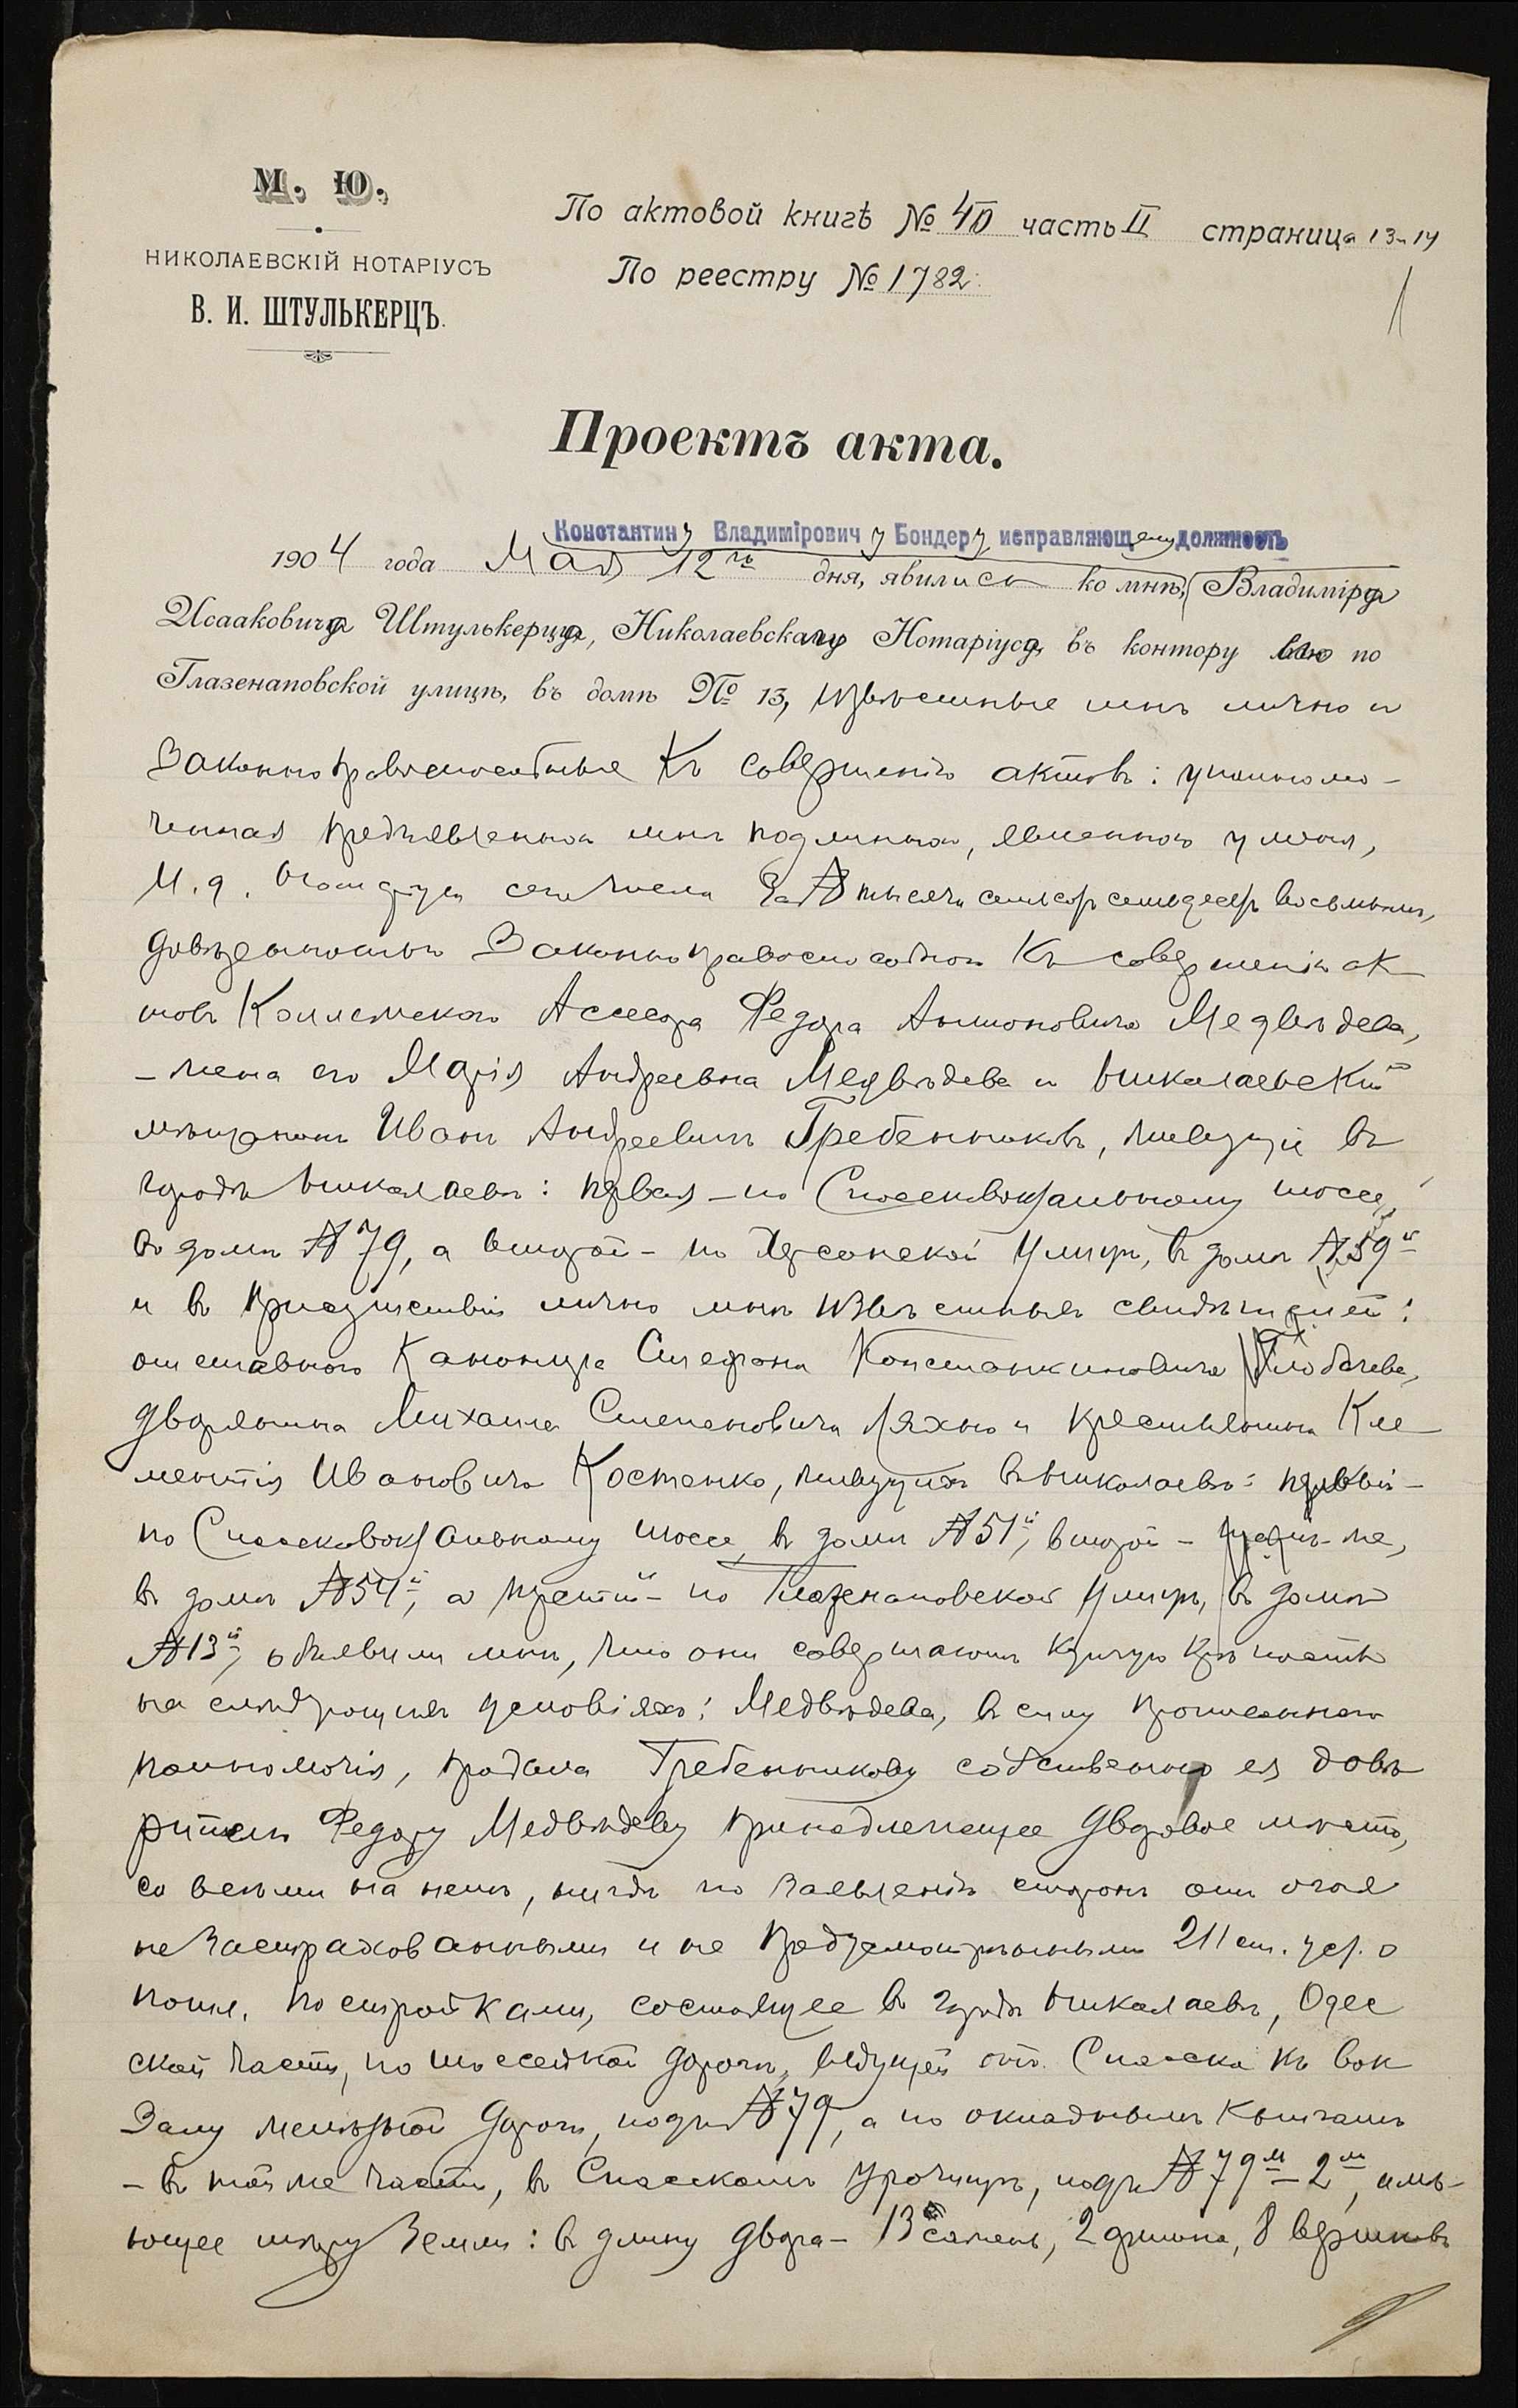 М. Ю.
НИКОЛАЕВСКІЙ НОТАРІУСЪ
В. И. ШТУЛЬКЕРЦЪ.
По актовой книгѣ № 40 часть II страница 13-14
По реестру № 1782
1
Проектъ акта.
Константину Владиміровичу Бондеру, исправляющему должность
1904 года Мая 12го дня, явились ко мнѣ, Владиміра
Исааковича Штулькерца, Николаевскаго Нотаріуса, въ контору его по
Глазенаповской улицѣ, въ домѣ № 13, извѣстные мнѣ лично и
законноправоспособные къ совершенію актовъ: уполномо-
ченная предъявленною мнѣ подлинною, явленною у меня,
И. д. Нотаріуса сего числа за № тысяча семьсотъ семьдесятъ восьмымъ,
довѣренностью законноправоспособнаго къ совершенію ак
товъ Коллежскаго Ассесора Федора Антоновича Медвѣдева,
- жена его Марія Андреевна Медвѣдева и Николаевскій
мѣщанинъ Иванъ Андреевичъ Гребенниковъ, живущіе въ
городѣ Николаевѣ: первая - по Спассковокзальному шоссе,
въ домѣ № 79, а второй - по Херсонской улицѣ, въ домѣ № 59й
и въ присутствіи лично мнѣ извѣстныхъ свидѣтелей:
отставного Канонира Стефана Константиновича
дворянина Михаила Степановича Ляхно и крестьянина Кле
ментія Ивановича Костенко, живущихъ въ Николаевѣ: первый -
по Спассковокзальному шоссе, въ домѣ № 51й, второй - же,
въ домѣ № 54й, а третій - по Глазенаповской улицѣ, въ домѣ
№ 13й, объявили мнѣ, что они совершаютъ купчую крѣпость
на слѣдующихъ условіяхъ: Медвѣдева, въ силу прописаннаго
полномочія, продала Гребенникову собственно ея довѣ
рителю Федору Медвѣдеву принадлежащее дворовое мѣсто,
со всѣми на немъ, нигдѣ по заявленію сторонъ отъ огня
не застрахованными и не предусмотрѣнными 211 ст. уст. о
пошл. постройками, состоящее въ городѣ Николаевѣ, Одес
ской части, по шоссейной дорогѣ, ведущей отъ Спасска къ вок
залу желѣзной дороги, подъ № 79, а по окладнымъ книгамъ
- въ той же части, въ Спасскомъ урочищѣ, подъ № 79м - 2м, имѣ-
ющее мѣру земли: въ длину двора - 13 сажень, 2 аршина, 8 вершковъ